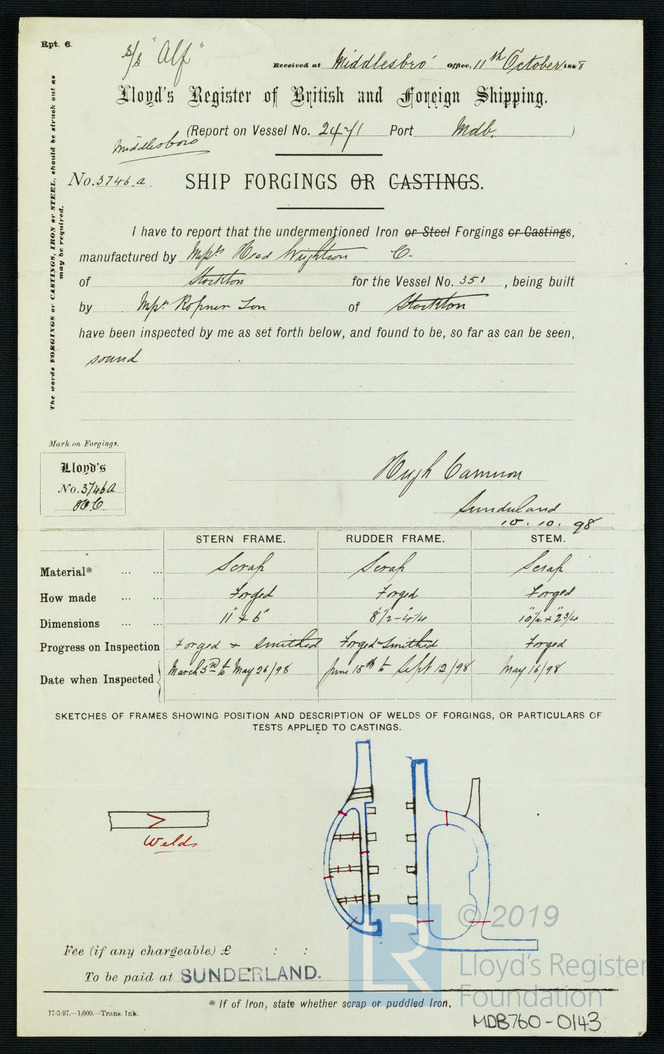 Rpt. 6.
S/S "Alf"
Received at Middlesbro' Office, 11th October 1898
Lloyd's Register of British and Foreign Shipping.
(Report on Vessel No. 2471 Port Mdb.)
Middlesboro
No. 3746.a. SHIP FORGINGS OR CASTINGS.
The words FORGINGS or CASTINGS, IRON or STEEL, should be struck out as
may be required.
I have to report that the undermentioned Iron or Steel Forgings or Castings,
manufactured by Messrs Head Wrightson Co.
of Stockton for the Vessel No. 351, being built
by Messrs Ropner Son of Stockton
have been inspected by me as set forth below, and found to be, so far as can be seen,
sound
Mark on Forgings.
Lloyd's
No. 3746A
H.C.
Hugh Cameron
Sunderland
10.10.98
STERN FRAME. RUDDER FRAME. STEM.
Material* ... ... Scrap Scrap Scrap
How made ... Forged Forged Forged
Dimensions ... 11" + 6" 8 1/2 - 4 1/4 10 1/2 + 2 3/4
Progress on Inspection Forged + Smithed Forged Smithed Forged
Date when Inspected March 3rd to May 26/98 June 15th to Sept 12/98 May 16/98
SKETCHES OF FRAMES SHOWING POSITION AND DESCRIPTION OF WELDS OF FORGINGS, OR PARTICULARS OF
TESTS APPLIED TO CASTINGS.
Welds
Fee (if any chargeable) £ : :
To be paid at SUNDERLAND.
* If of Iron, state whether scrap or puddled Iron.
17/5/97.—1,000.—Trans. Ink.
LR
© 2019
Lloyd's Register
Foundation
MDB760-0143